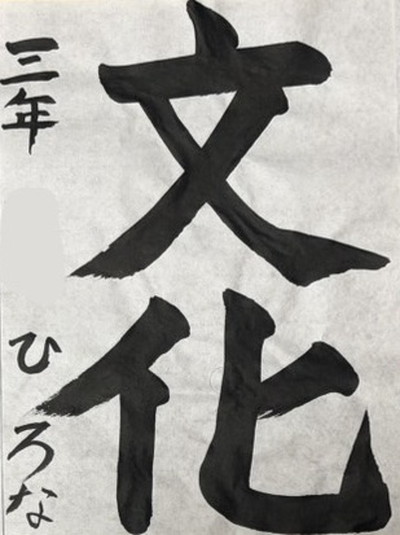 文化
三年 ひろな